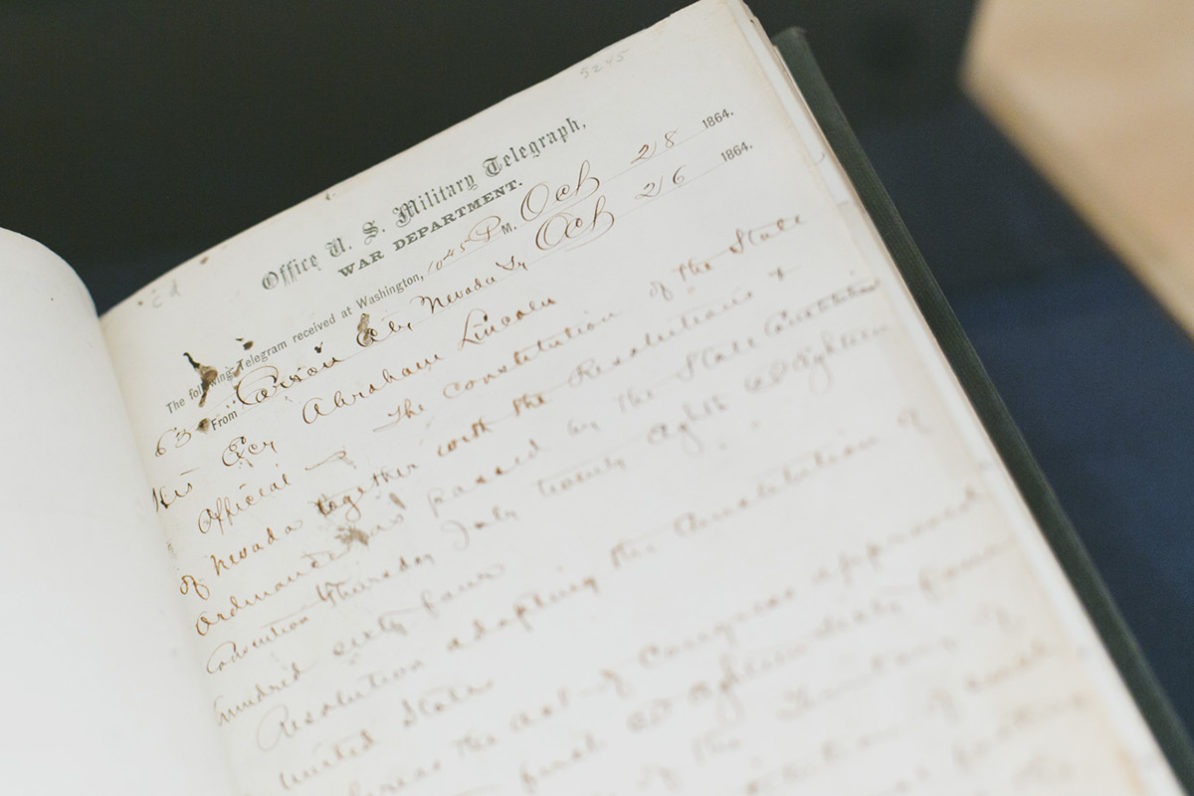 5245
Office U. S. Military Telegraph,
WAR DEPARTMENT.
The following Telegram received at Washington, 1045 P M. Oct 28 1864.
From Carson City Nevada Ty Oct 26 1864.
63
His Ecy Abraham Lincoln
Official The constitution of the State
of Nevada together with the Resolutions &
Ordinances passed by the State Constitutional
Convention Thursday July twenty eighth Eighteen
hundred sixty four
Resolution adopting the Constitution of
United States
the act of Congress approved
first Eighteen sixty four
of the Territory of